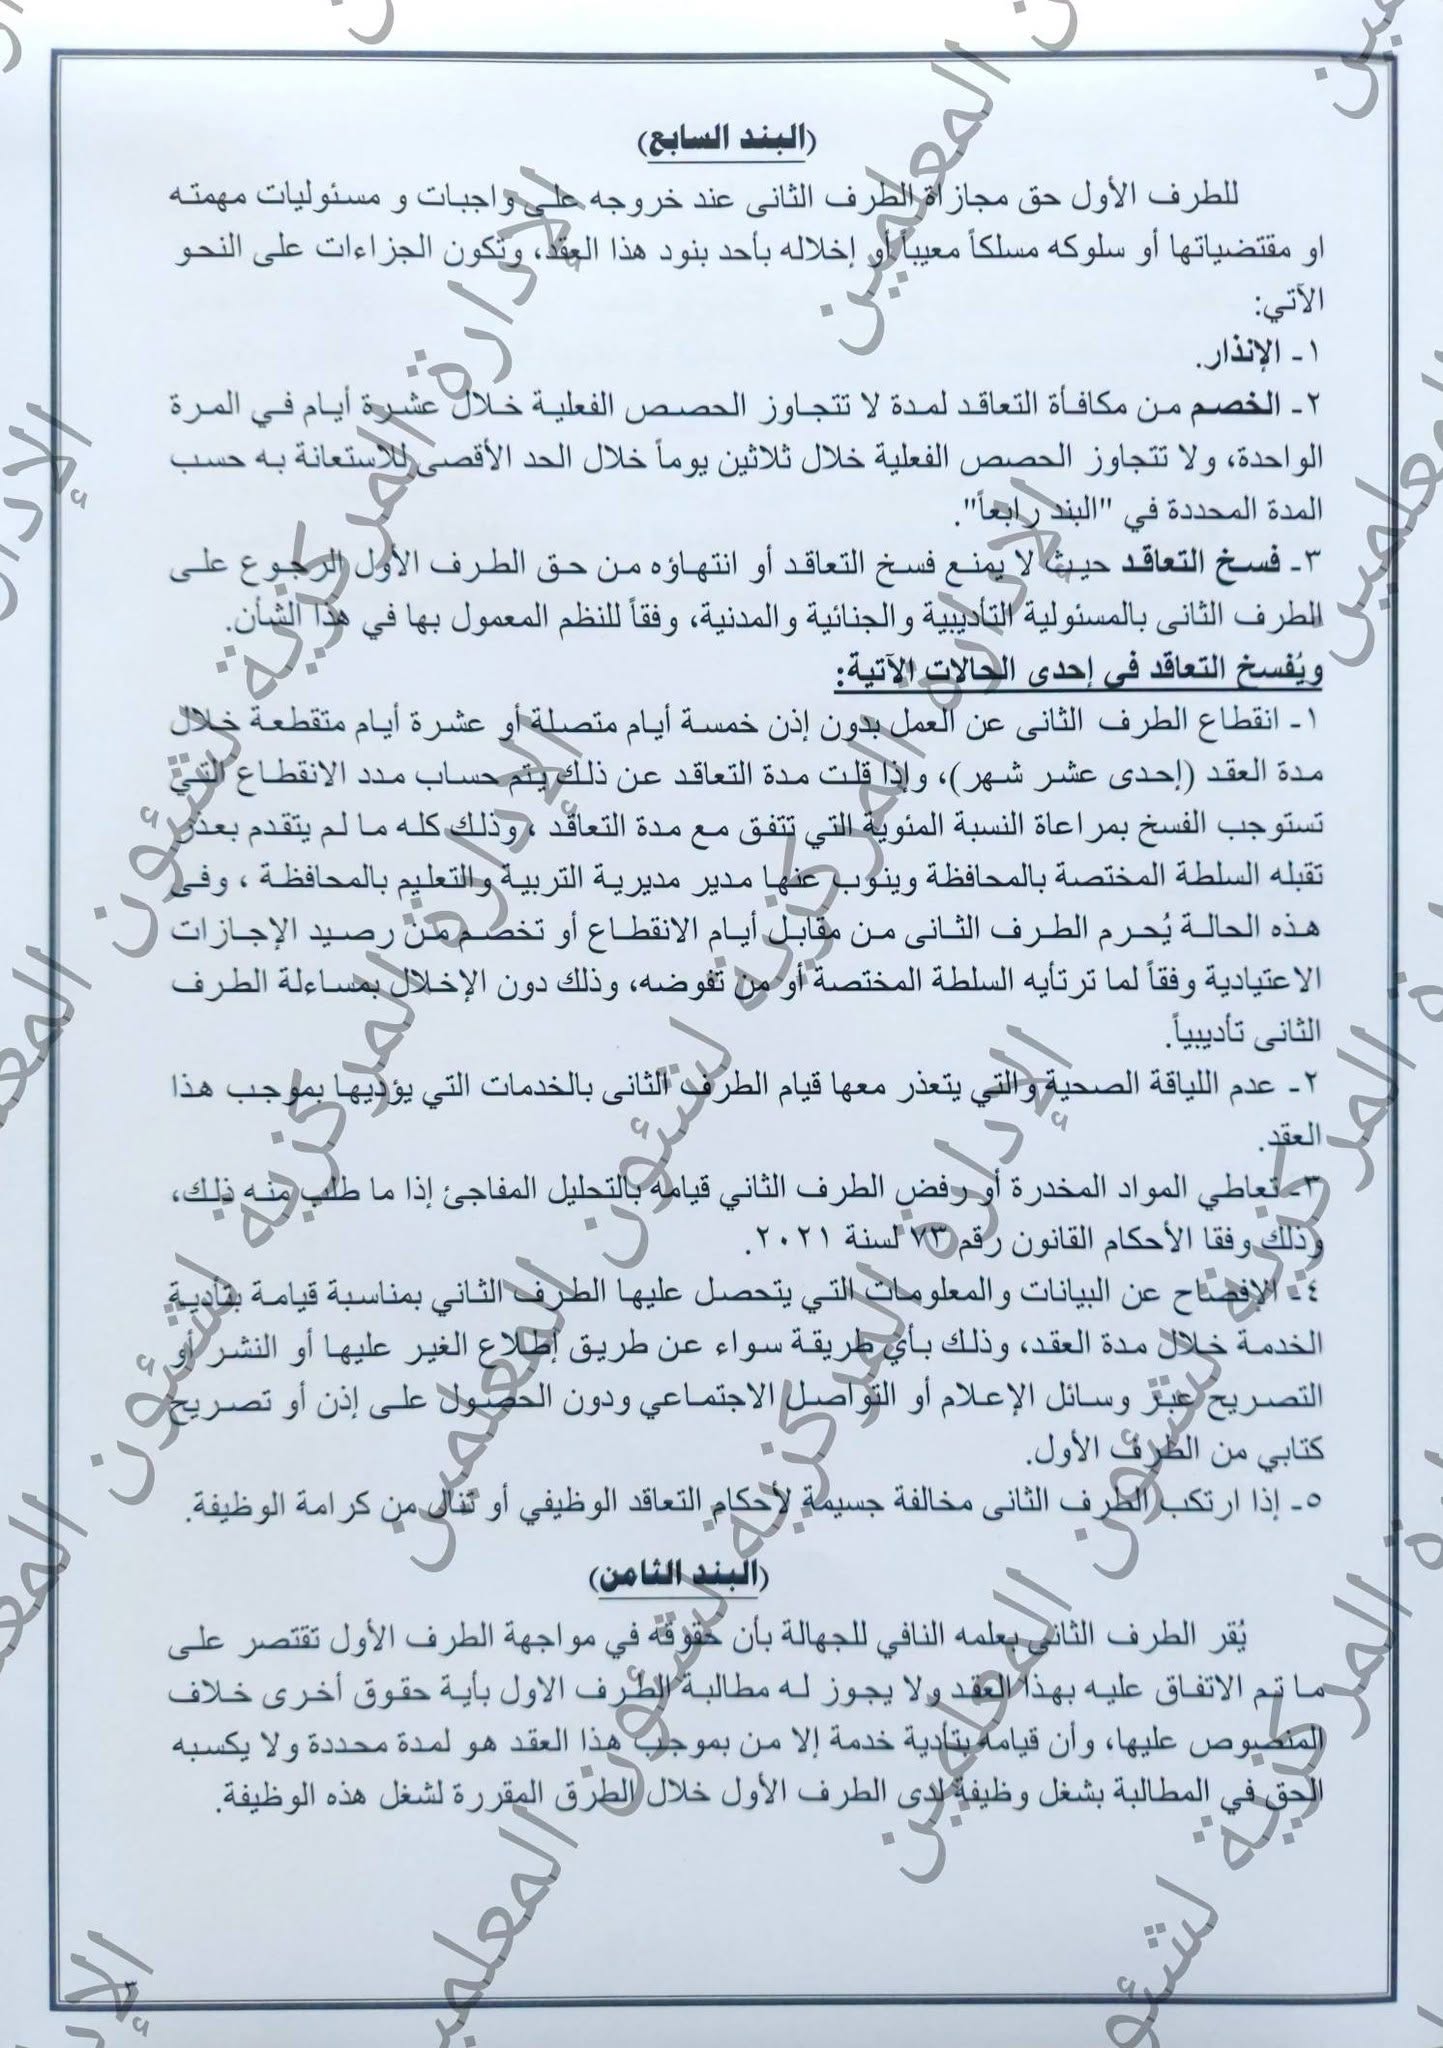 (البند السابع)
للطرف الأول حق مجازاة الطرف الثانى عند خروجه على واجبات و مسئوليات مهمته
او مقتضياتها أو سلوكه مسلكاً معيباً أو إخلاله بأحد بنود هذا العقد، وتكون الجزاءات على النحو
الآتي:
١- الإنذار.
٢- الخصم من مكافأة التعاقد لمدة لا تتجاوز الحصص الفعلية خلال عشرة أيام في المرة
الواحدة، ولا تتجاوز الحصص الفعلية خلال ثلاثين يوماً خلال الحد الأقصى للاستعانة به حسب
المدة المحددة في "البند رابعاً".
٣- فسخ التعاقد حيث لا يمنع فسخ التعاقد أو انتهاؤه من حق الطرف الأول الرجوع على
الطرف الثانى بالمسئولية التأديبية والجنائية والمدنية، وفقاً للنظم المعمول بها في هذا الشأن.
ويُفسخ التعاقد في إحدى الحالات الآتية:
١- انقطاع الطرف الثانى عن العمل بدون إذن خمسة أيام متصلة أو عشرة أيام متقطعة خلال
مدة العقد (إحدى عشر شهر)، وإذا قلت مدة التعاقد عن ذلك يتم حساب مدد الانقطاع التي
تستوجب الفسخ بمراعاة النسبة المئوية التي تتفق مع مدة التعاقد ، وذلك كله ما لم يتقدم بعذر
تقبله السلطة المختصة بالمحافظة وينوب عنها مدير مديرية التربية والتعليم بالمحافظة ، وفى
هذه الحالة يُحرم الطرف الثانى من مقابل أيام الانقطاع أو تخصم من رصيد الإجازات
الاعتيادية وفقاً لما ترتأيه السلطة المختصة أو من تفوضه، وذلك دون الإخلال بمساءلة الطرف
الثانى تأديبياً.
٢- عدم اللياقة الصحية والتي يتعذر معها قيام الطرف الثانى بالخدمات التي يؤديها بموجب هذا
العقد.
٣- تعاطي المواد المخدرة أو رفض الطرف الثاني قيامه بالتحليل المفاجئ إذا ما طلب منه ذلك،
وذلك وفقا الأحكام القانون رقم ٧٣ لسنة ٢٠٢١.
٤- الإفصاح عن البيانات والمعلومات التي يتحصل عليها الطرف الثاني بمناسبة قيامة بتأدية
الخدمة خلال مدة العقد، وذلك بأي طريقة سواء عن طريق إطلاع الغير عليها أو النشر أو
التصريح عبر وسائل الإعلام أو التواصل الاجتماعي ودون الحصول على إذن أو تصريح
كتابي من الطرف الأول.
٥- إذا ارتكب الطرف الثانى مخالفة جسيمة لأحكام التعاقد الوظيفي أو تنال من كرامة الوظيفة.
(البند الثامن)
يُقر الطرف الثانى بعلمه النافي للجهالة بأن حقوقه في مواجهة الطرف الأول تقتصر على
ما تم الاتفاق عليه بهذا العقد ولا يجوز له مطالبة الطرف الاول بأية حقوق أخرى خلاف
المنصوص عليها، وأن قيامه بتأدية خدمة إلا من بموجب هذا العقد هو لمدة محددة ولا يكسبه
الحق في المطالبة بشغل وظيفة لدى الطرف الأول خلال الطرق المقررة لشغل هذه الوظيفة.
٣
الإدارة المركزية لشئون المعلمين
الإدارة المركزية لشئون المعلمين
الإدارة المركزية لشئون المعلمين